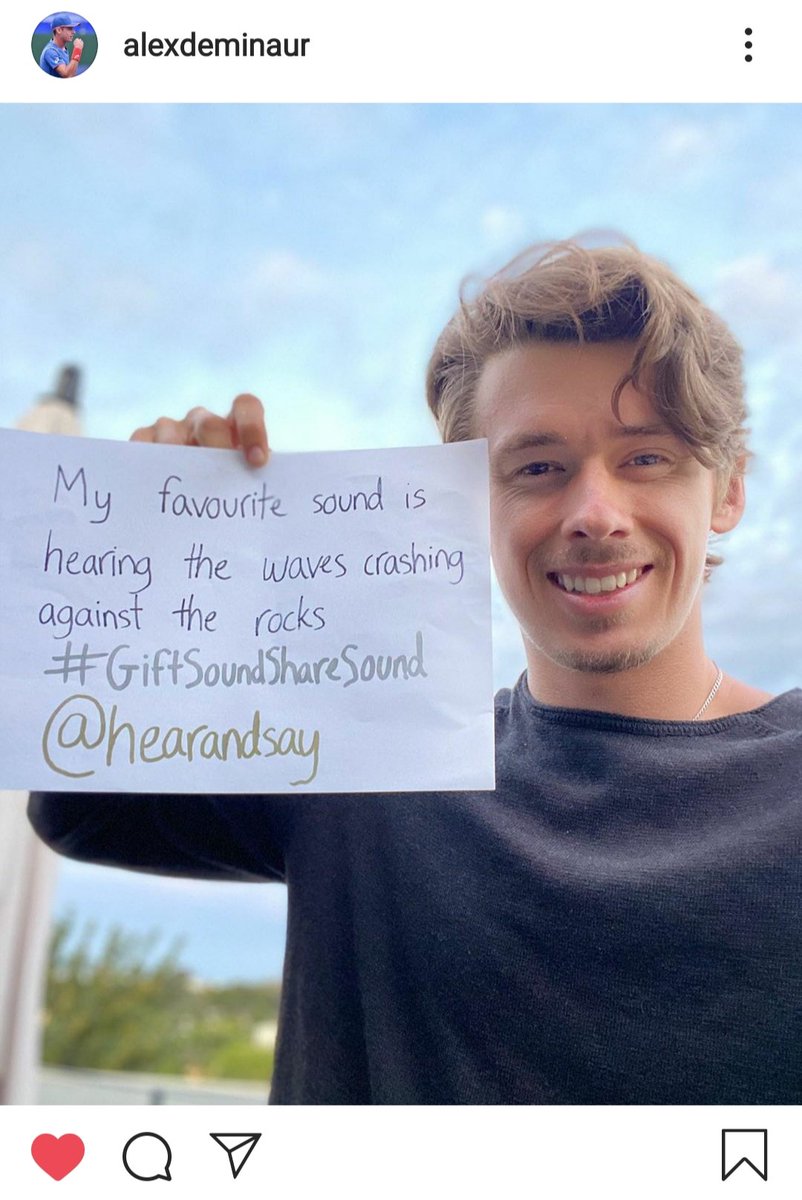 alexdeminaur
My favourite sound is
hearing the waves crashing
against the rocks
#GiftSoundShareSound
@hearandsay